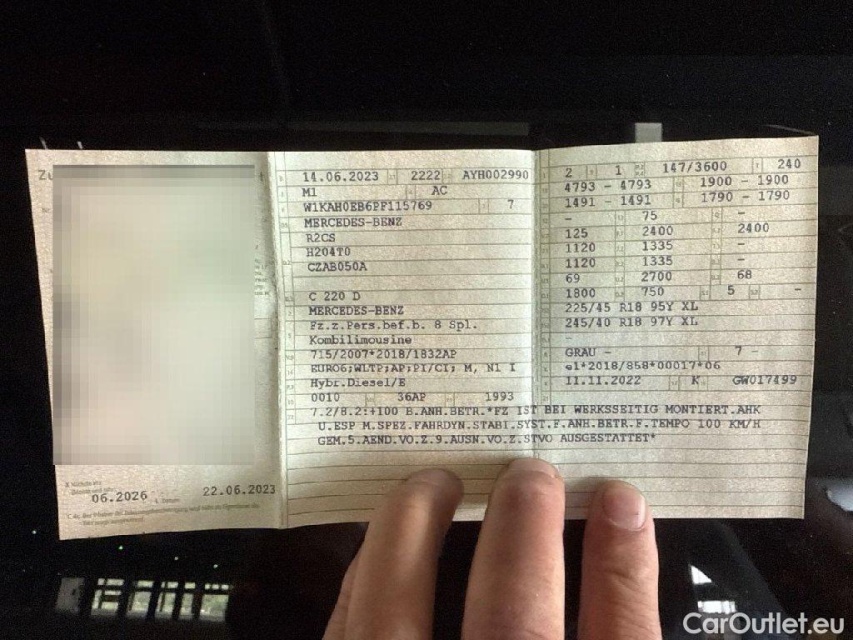 Zu
06.2026
22.06.2023
14.06.2023 2222 AYH002990
M1 AC
W1KAH0EB6PF115769 7
MERCEDES-BENZ
R2CS
H204T0
CZAB050A
C 220 D
MERCEDES-BENZ
Fz.z.Pers.bef.b. 8 Spl.
Kombilimousine
715/2007*2018/1832AP
EURO6;WLTP;AP;PI/CI; M, N1 I
Hybr.Diesel/E
0010 36AP 1993
2 1 147/3600 240
4793 - 4793 1900 - 1900
1491 - 1491 1790 - 1790
- 75 -
125 2400 2400
1120 1335 -
1120 1335 -
69 2700 68
1800 750 5 -
225/45 R18 95Y XL
245/40 R18 97Y XL
-
GRAU - 7 -
e1*2018/858*00017*06
11.11.2022 K GW017499
7.2/8.2:+100 B.ANH.BETR.*FZ IST BEI WERKSSEITIG MONTIERT.AHK
U.ESP M.SPEZ.FAHRDYN.STABI.SYST.F.ANH.BETR.F.TEMPO 100 KM/H
GEM.5.AEND.VO.Z.9.AUSN.VO.Z.STVO AUSGESTATTET*
CarOutlet.eu